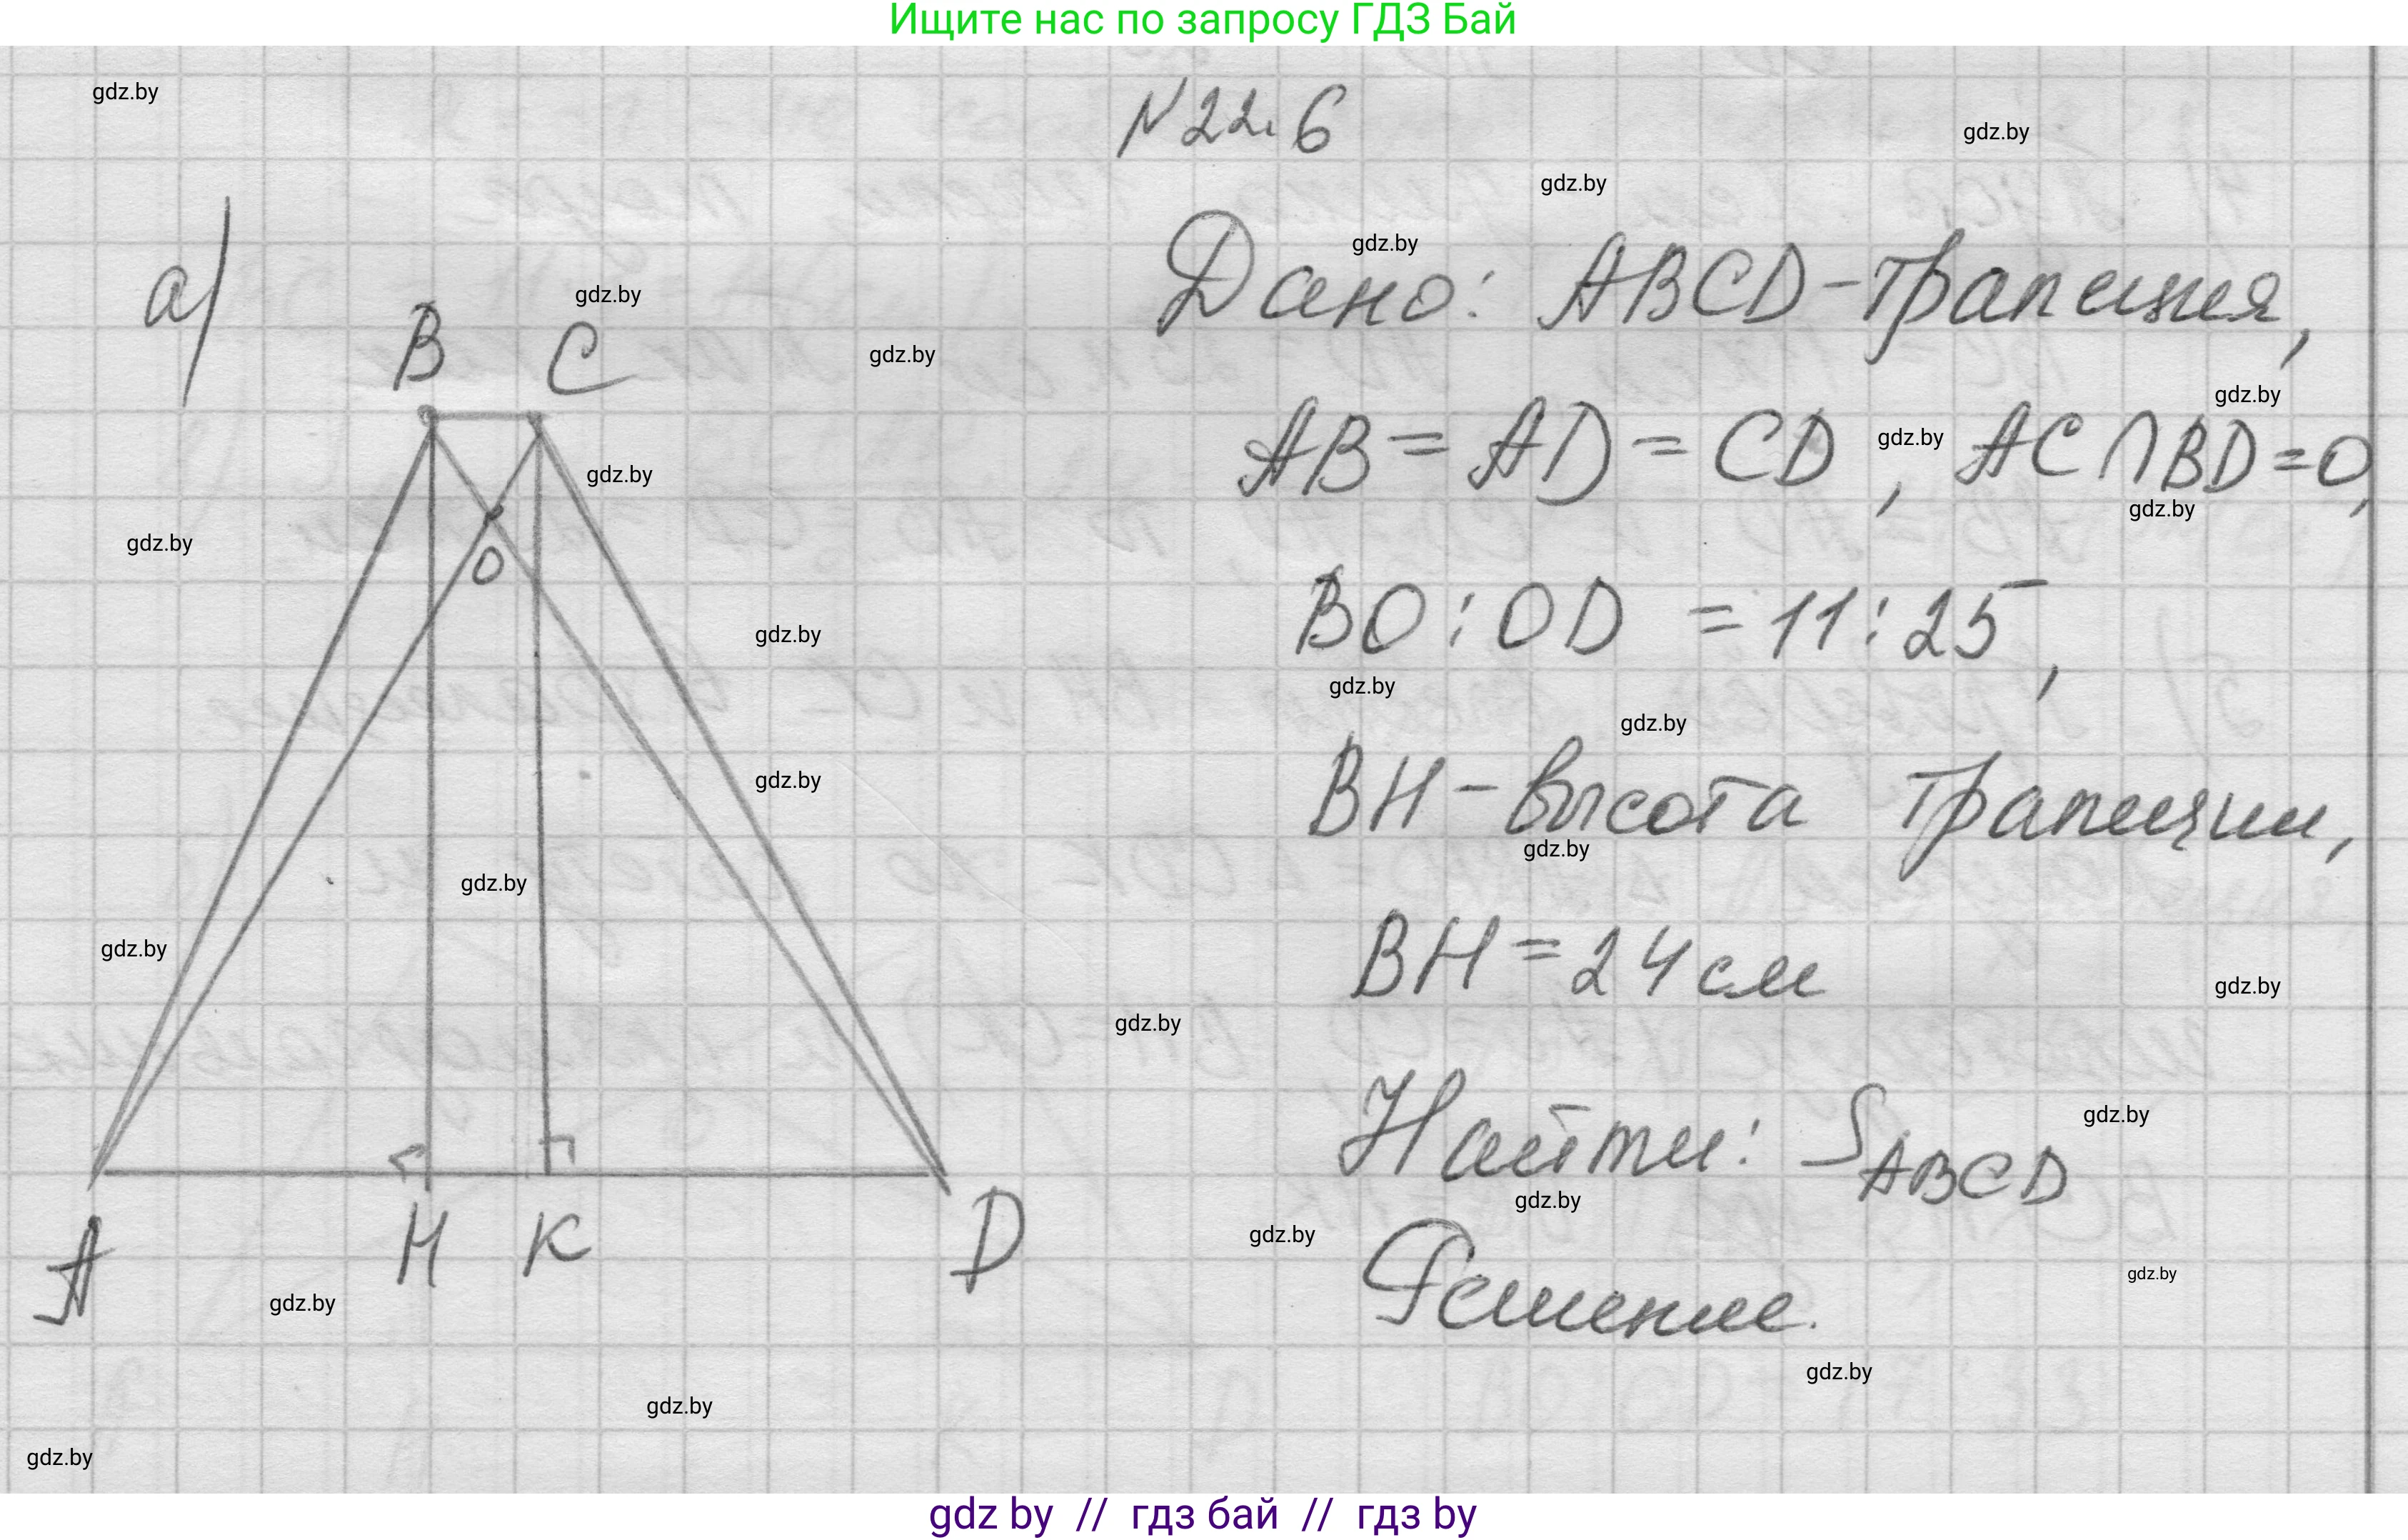 Ищите нас по запросу ГДЗ Бай
gdz.by
N 22.6
gdz.by
gdz.by
а)
Дано: ABCD - трапеция,
gdz.by
gdz.by
B C
gdz.by
gdz.by
AB = AD = CD, AC ∩ BD = O,
gdz.by
gdz.by
gdz.by
gdz.by
O
BO : OD = 11 : 25,
gdz.by
gdz.by
gdz.by
BH - высота трапеции,
gdz.by
gdz.by
gdz.by
BH = 24 см
gdz.by
gdz.by
gdz.by
Найти: S ABCD
gdz.by
gdz.by
A H K D
gdz.by
Решение.
gdz.by
gdz.by
gdz.by
gdz.by
gdz.by
gdz by // гдз бай // гдз by